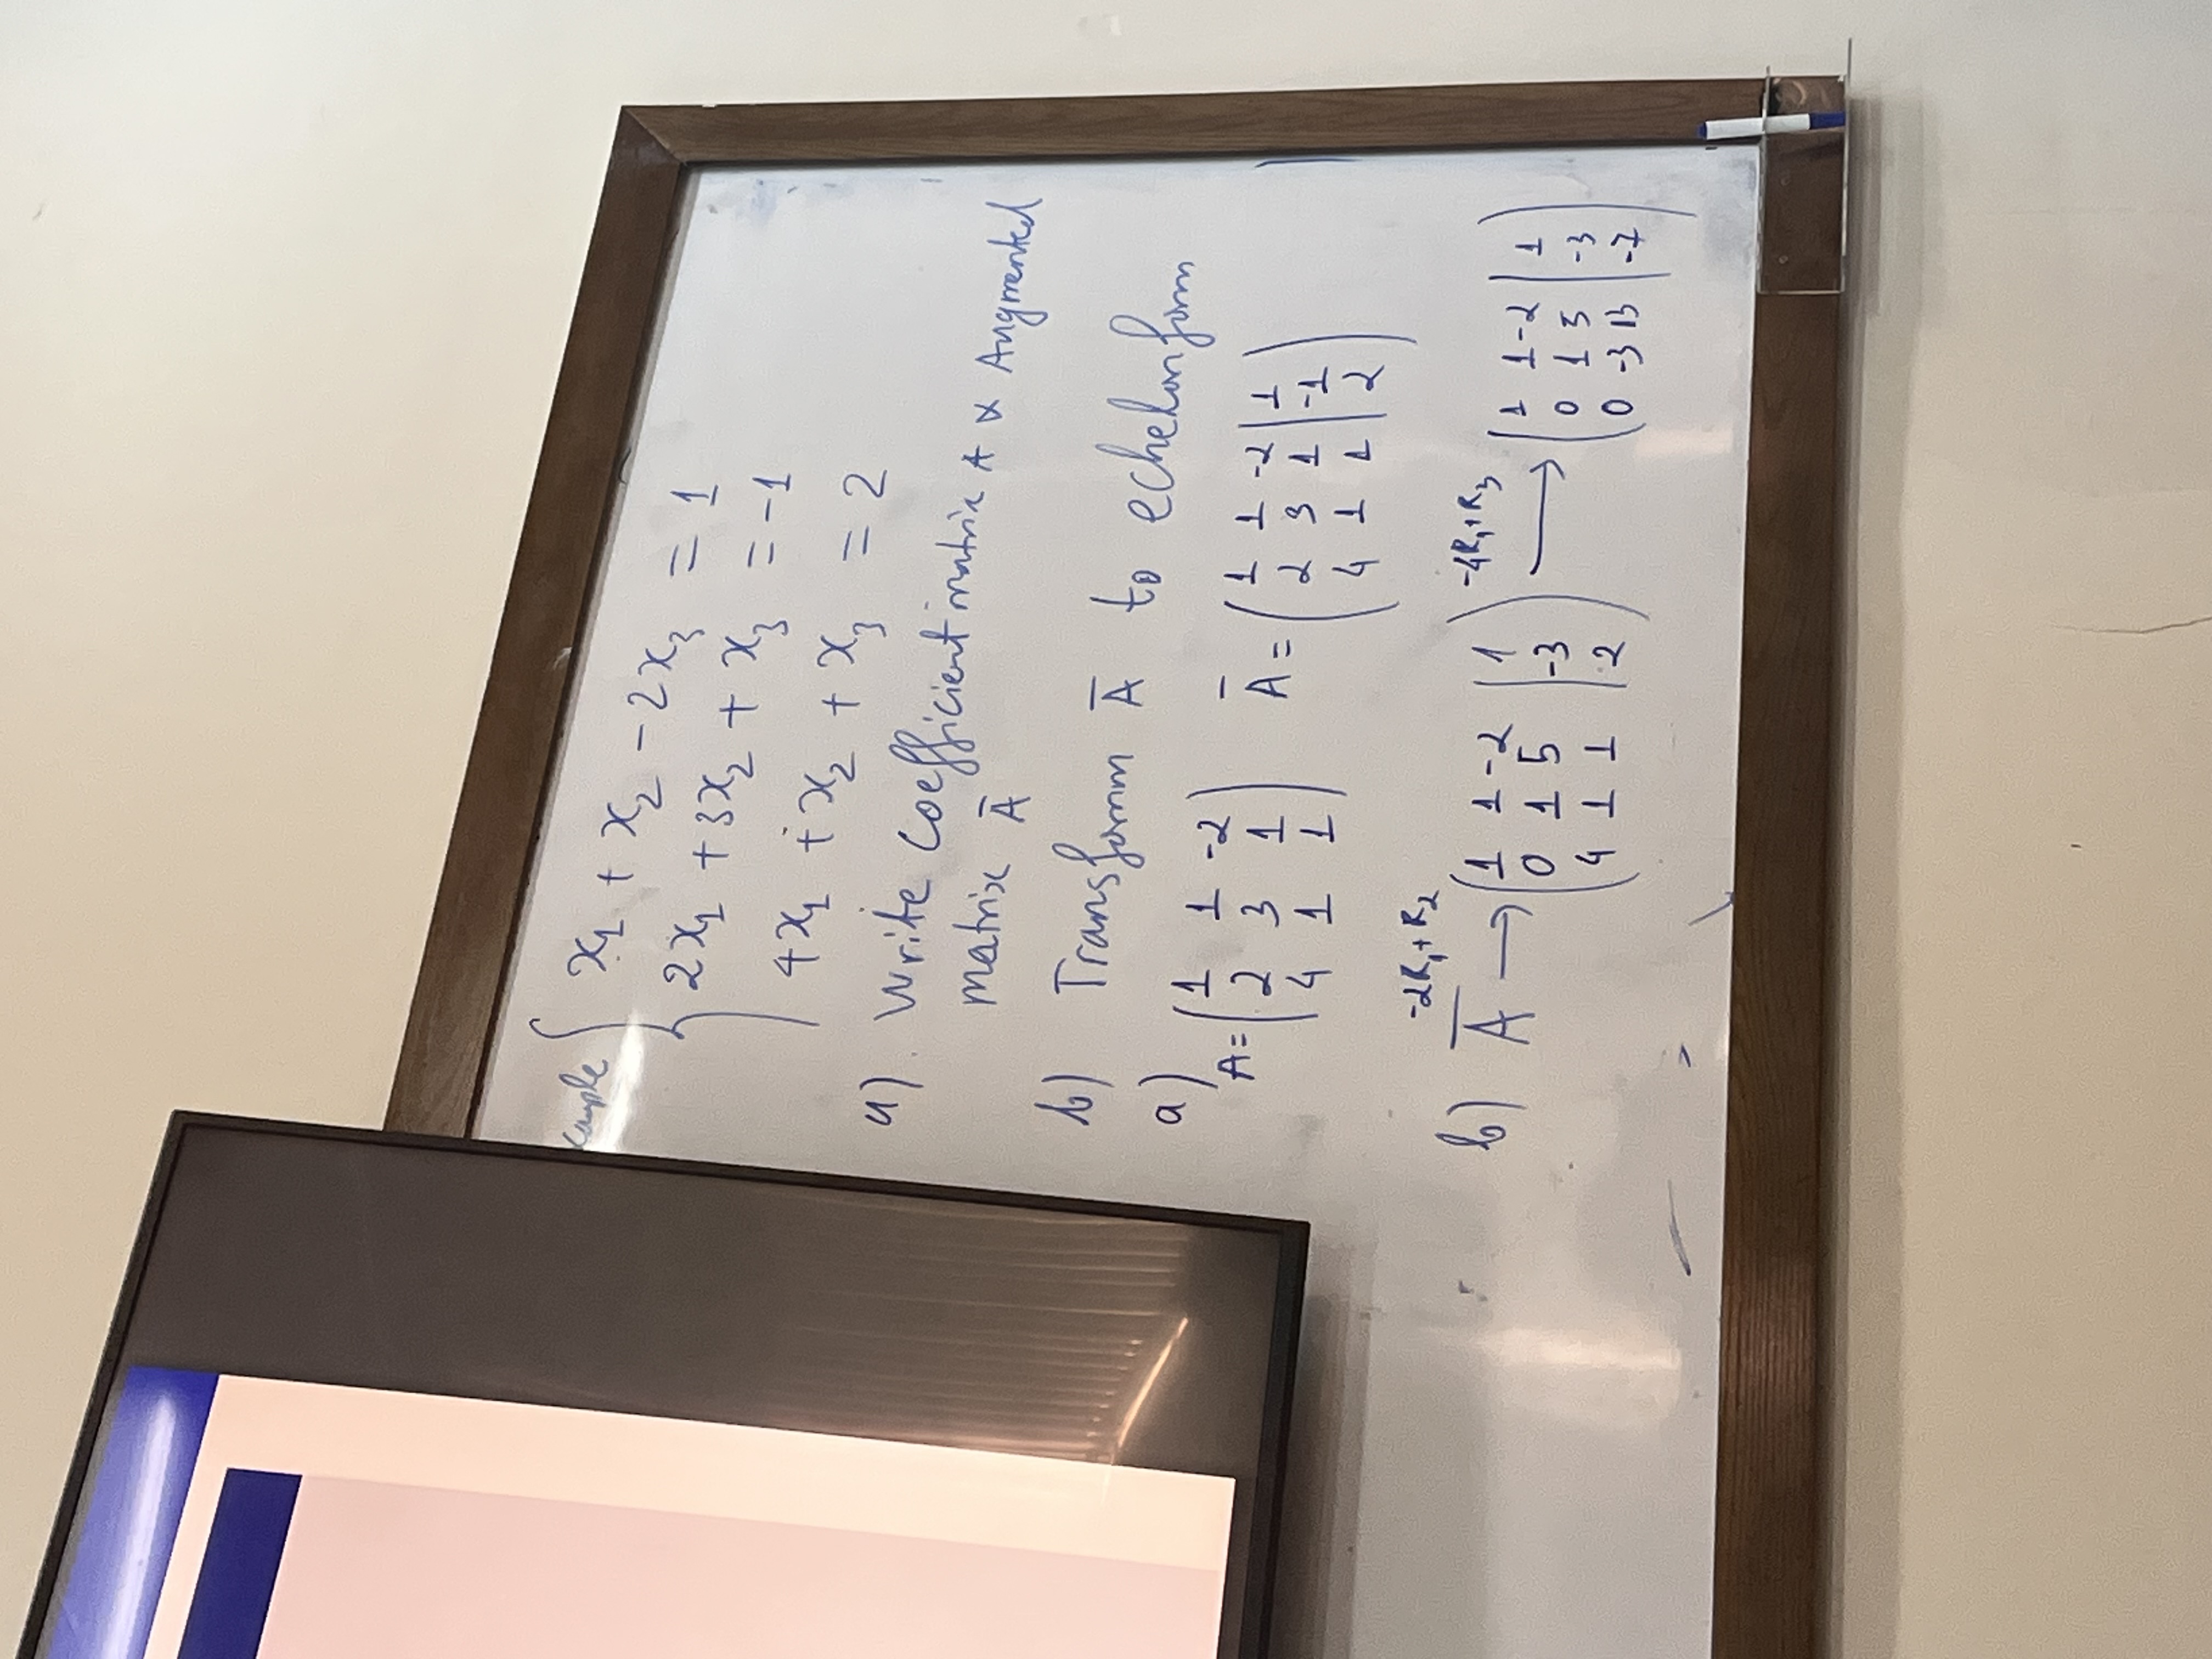 xample x₁ + x₂ - 2x₃ = 1
2x₁ + 3x₂ + x₃ = -1
4x₁ + x₂ + x₃ = 2
a). Write Coefficient matrix A & Augmented
matrix Ā
b) Transform Ā to echelon form
a) A = ( 1 1 -2 ) Ā = ( 1 1 -2 | 1 )
( 2 3 1 ) ( 2 3 1 | -1 )
( 4 1 1 ) ( 4 1 1 | 2 )
-2R₁+R₂ -4R₁+R₃
b) Ā → ( 1 1 -2 | 1 ) → ( 1 1 -2 | 1 )
( 0 1 5 | -3 ) ( 0 1 5 | -3 )
( 4 1 1 | 2 ) ( 0 -3 13 | -7 )